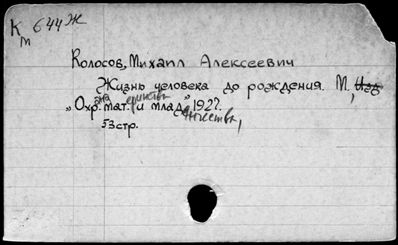 К 644Ж
м
Колосов, Михаил Алексеевич
Жизнь человека до рождения. М., Изд
„Охрана мат. и млад" 1927.
53стр.